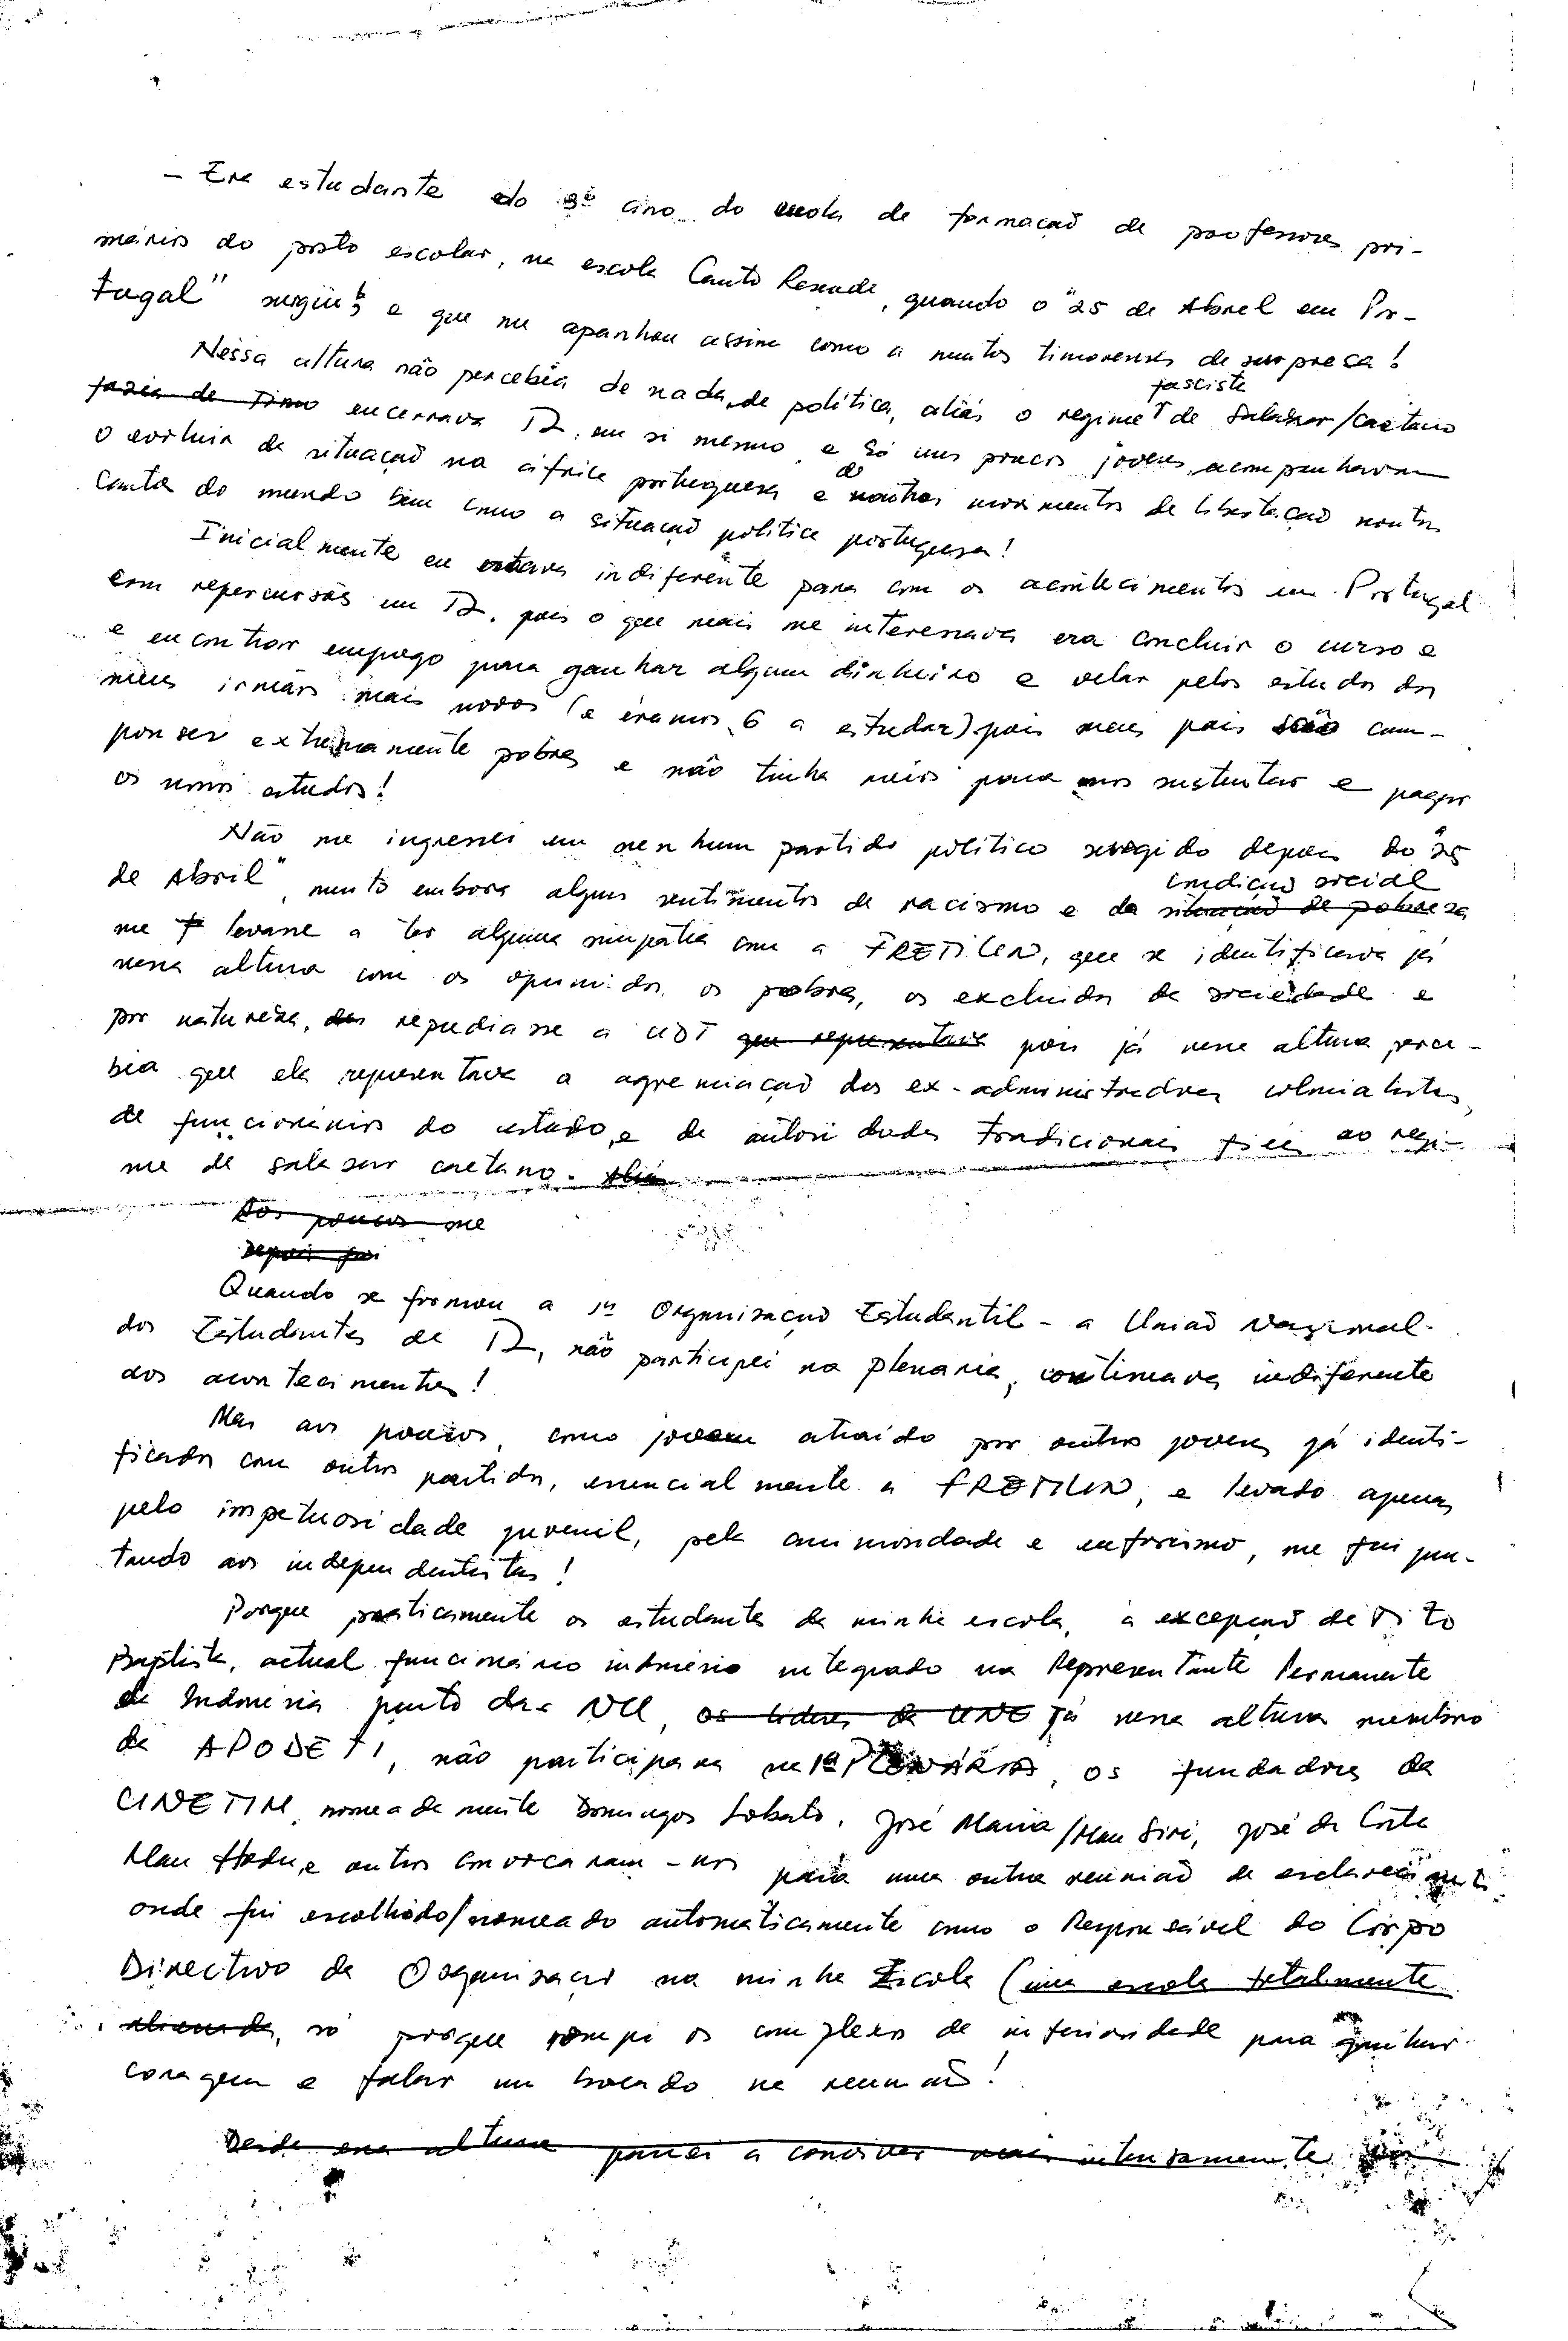 - Era estudante do 3º ano do escola de formação de professores pri-
mários do posto escolar, na escola Canto Resende, quando o "25 de Abril em Por-
tugal" surgiu e que me apanhou assim como a muitos timorenses de surpresa!
Nessa altura não percebia de nada de política, aliás o regime fascista de Salazar/Caetano
fazia de Timo encerrava TL em si mesmo e só uns poucos jovens acompanhavam
o evoluir da situação na áfrica portuguesa e doutros movimentos de libertação noutros
cantos do mundo bem como a situação política portuguesa!
Inicialmente eu estava indiferente para com os acontecimentos em Portugal
com repercursões em TL, pois o que mais me interessava era concluir o curso e
e encontrar emprego para ganhar algum dinheiro e velar pelos estudos dos
meus irmãos mais novos (e éramos 6 a estudar) pois meus pais são cam-
poneses extremamente pobres e não tinha meios para nos sustentar e pagar
os nossos estudos!
Não me ingressei em nenhum partido político surgido depois do "25
de Abril", muito embora alguns sentimentos de racismo e da situação de pobreza condição social
me levasse a ter alguma simpatia com a FRETILIN, que se identificava já
nessa altura com os oprimidos, os pobres, os excluidos da sociedade e
por natureza, repudiasse a UDT que representava pois já nessa altura perce-
bia que ela representava a agremiação dos ex-administradores colonialistas,
de funcionários do estado, e de autoridades tradicionais fiéis ao regi-
me de salasar caetano. Aliás
Aos poucos me
Depois foi
Quando se fromou a 1ª Organização Estudantil - a União Nacional
dos Estudantes de TL, não participei na plenária, continuava indiferente
aos acontecimentos!
Mas aos poucos, como jovem atraído por outros jovens já identi-
ficados com outros partidos, essencialmente a FRETILIN, e levado apenas
pelo impetuosidade juvenil, pela animosidade e euforismo, me fui jun-
tando aos independentistas!
Porque praticamente os estudantes da minha escola, à excepção de Tito
Baptista, actual funcionário indonésio integrado na Representante Permanente
da Indonésia junto das NU, os lideres da UNE já nessa altura membro
da APODETI, não participara na 1ª PLENÁRIA, os fundadores da
UNETIM, nomeadamente Domingos Lobato, José Maria/Mau Siri, José da Costa
Mau Hodu, e outros convocaram-nos para uma outra reunião de esclarecimento
onde fui escolhido/nomeado automàticamente como o Responsável do Corpo
Directivo da Organização na minha Escola (uma escola totalmente
alienada, só porque rompi os complexos de inferioridade para ganhar
coragem e falar um bocado na reunião!
Desde essa altura passei a conviver mais intensamente